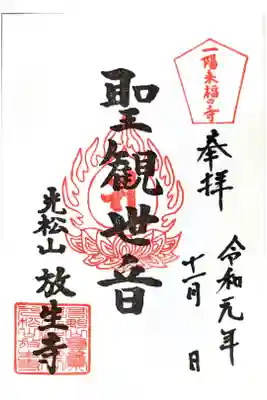 一陽来福の寺
奉拝
令和元年
十一月 日
聖観世音
光松山 放生寺